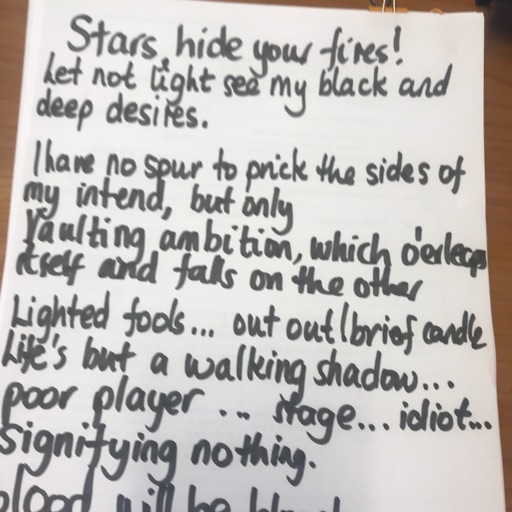 Stars, hide your fires!
Let not light see my black and
deep desires.
I have no spur to prick the sides of
my intend, but only
Vaulting ambition, which o'erleaps
itself and falls on the other
Lighted fools... out out! brief candle
Life's but a walking shadow...
poor player... stage... idiot...
signifying nothing.
blood will be